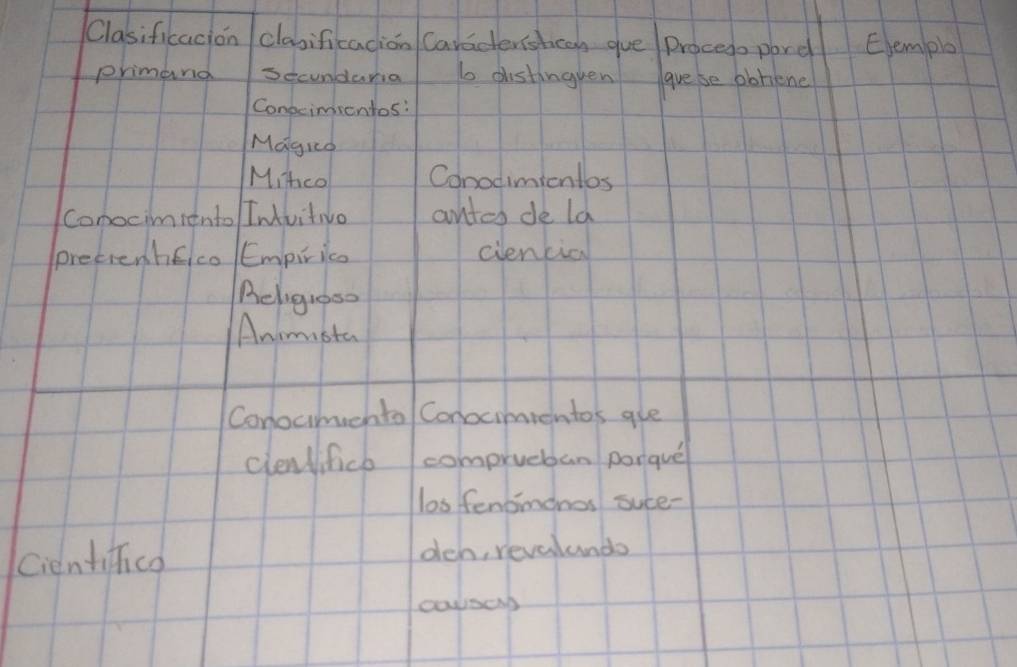 Clasificación clasificación Carácterísticas que Proceso por el Ejemplo
primaria secundaria lo distinguen que se obtiene
Conocimientos:
Mágico
Mítico Conocimientos
Conocimiento Intuitivo antes de la
precientífico Empírico ciencia
Religioso
Animista
Conocimiento Conocimientos que
científico comprueban porqué
los fenómonos suce-
Científico den, revalando
causas